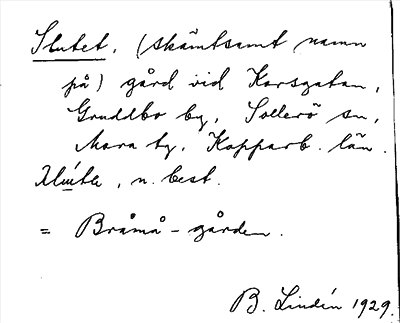 Slutet, (skämtsamt namn
på) gård vid Korsgatan,
Gruddbo by, Sollerö sn,
Mora tg, Kopparb. län.
, n. best.
= Bråmå-gården.
B. Lindén 1929.